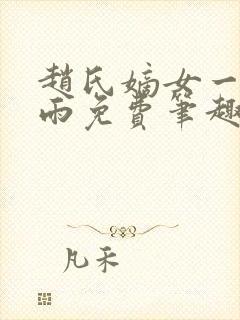 趙氏嫡女一
雨免費筆趣
凡禾